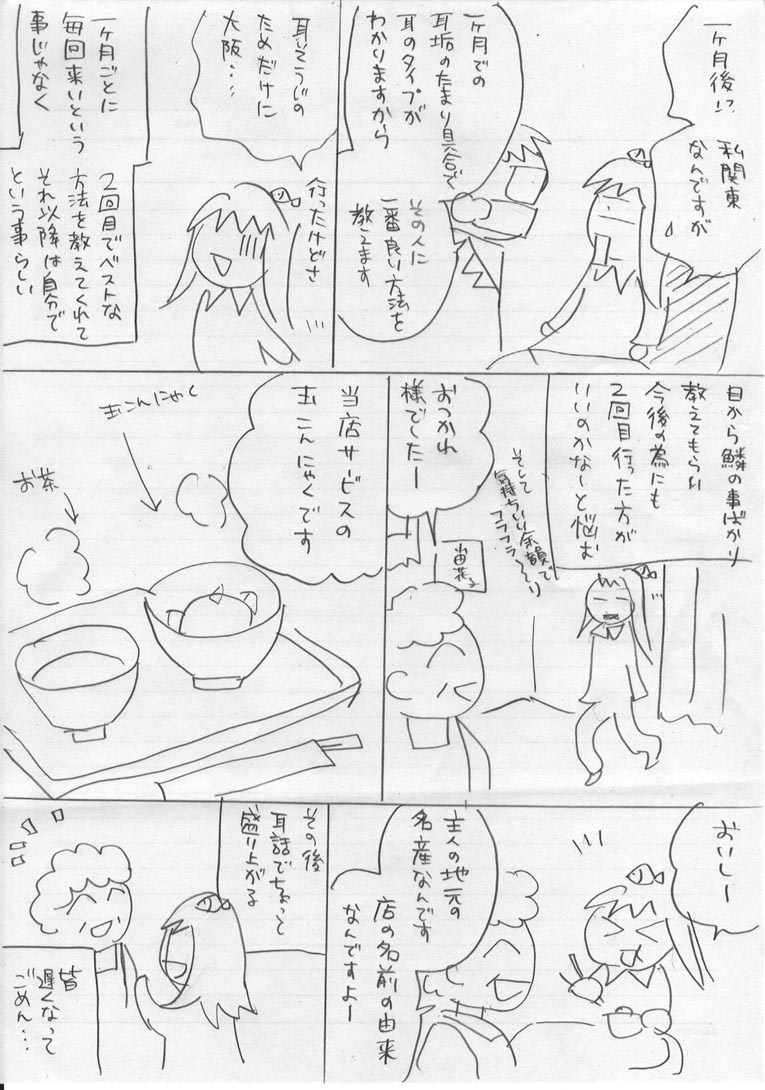 一ヶ月後!?
私関東
なんですが
一ヶ月での
耳垢のたまり具合で
耳のタイプが
わかりますから
その人に
一番良い方法を
教えます
耳そうじの
ためだけに
大阪…
行ったけどさ
一ヶ月ごとに
毎回来いという
事じゃなく
2回目でベストな
方法を教えてくれて
それ以降は自分で
という事らしい
目から鱗の事ばかり
教えてもらい
今後の為にも
2回目行った方が
いいのかなーと悩む
そして
気持ちいい余韻で
フラフラ〜〜
おつかれ
様でしたー
当店サービスの
玉こんにゃくです
玉こんにゃく
お茶
おいしー
主人の地元の
名産なんです
店の名前の由来
なんですよー
その後
耳話でちょっと
盛り上がる
皆
遅くなって
ごめん…